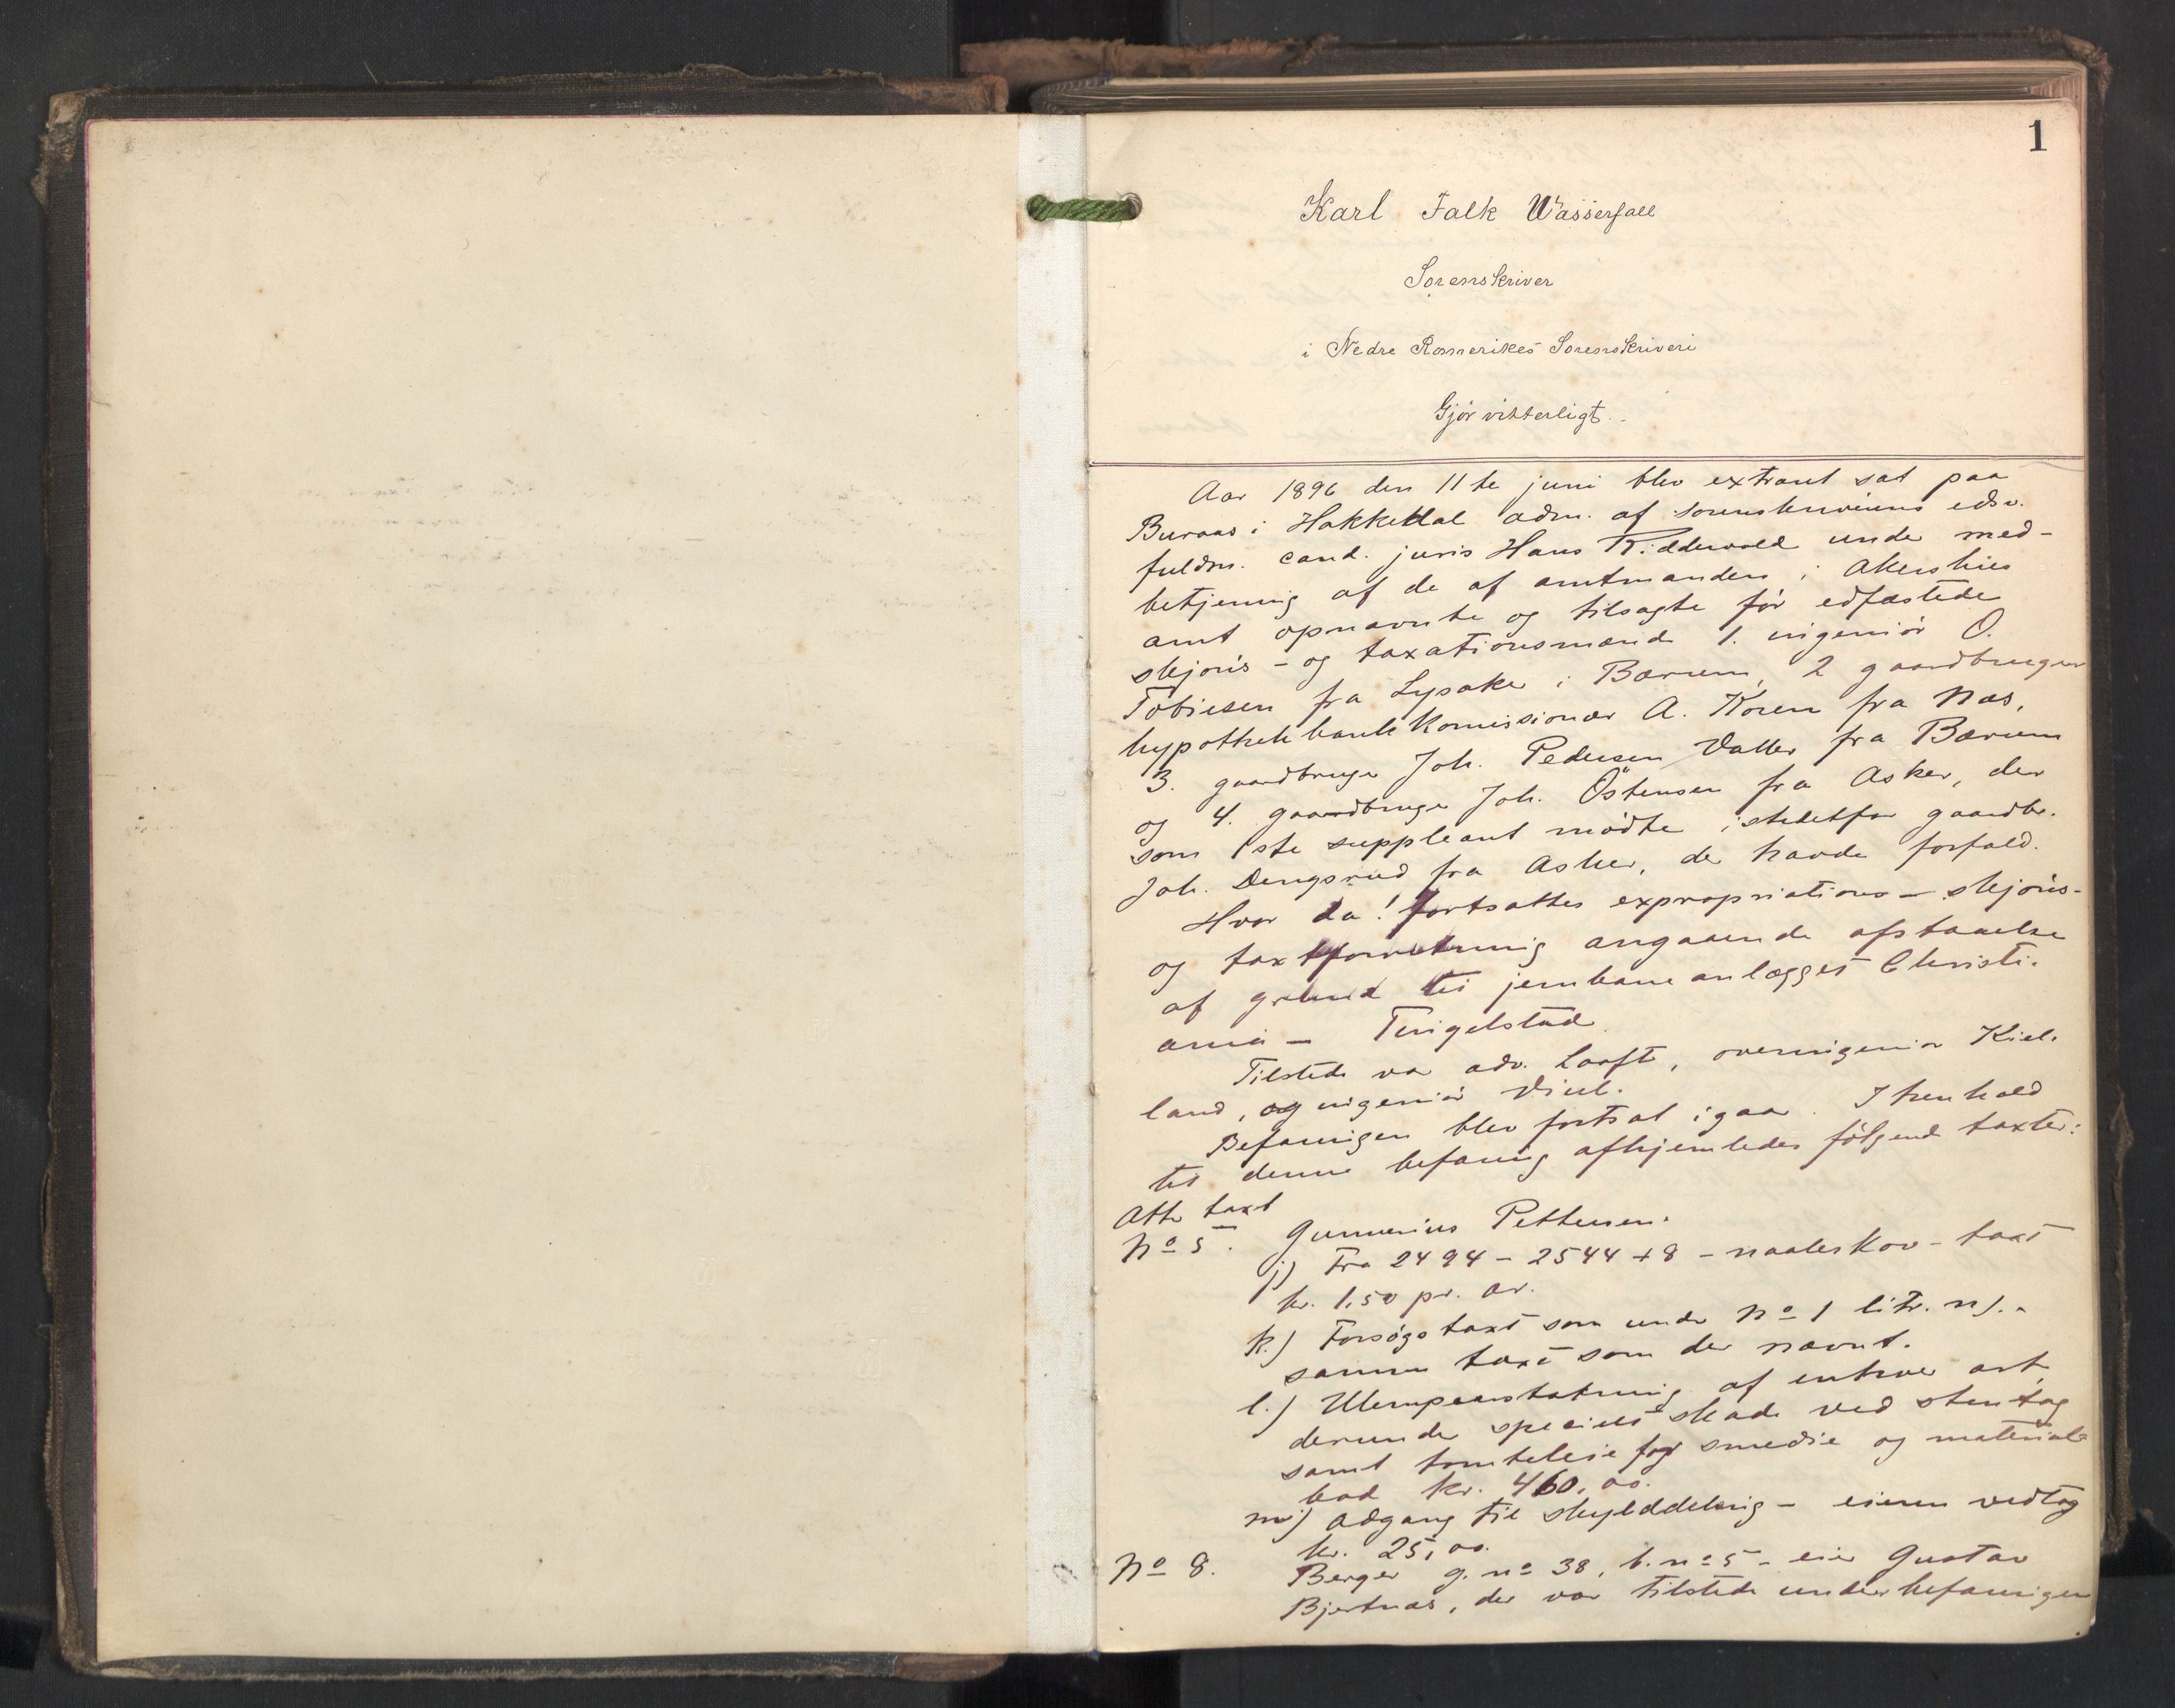 1
Karl Falk Wasserfall
Sorenskriver
i Nedre Romerikes Sorenskriveri
Gjör vitterligt.
Aar 1896 den 11te juni blev extraret sat paa
Buraas i Hakkedal adm. af sorenskriverens edsv.
fuldm. cand. juris Hans Riddervold under med-
betjening af de af amtmanden i Akershus
amt opnævnte og tilsagte før edfæstede
skjøns- og taxationsmænd 1. ingeniör O.
Tobiesen fra Lysaker i Bærum, 2 gaardbruger
hypothekbankkomissionær A. Koren fra Næs,
3. gaardbruger Joh. Pedersen Valler fra Bærum
og 4. gaardbruger Joh. Östensen fra Asker, der
som 1ste suppleant mödte istedetfor gaardbr.
Joh. Dengsrud fra Asker, der havde forfald.
Hvor da! fortsattes expropriations- skjöns-
og taxtforretning angaaende afstaaelse
af grund til jernbaneanlægget Christi-
ania - Tingelstad.
Tilstede var adv. Looft, overingeniør Kiel-
land, og ingeniör
Befaringen blev fortsat igaar. I henhold
til denne befaring afhjemledes fölgende taxter:
Atter taxt
No 5. Gunnerius Pettersen.
j) Fra 2494 - 2544 + 8 - naaleskov - taxt
kr. 1,50 pr. ar.
k.) Forsøgstaxt som under No 1 litr. n). -
samme taxt som der nævnt.
l.) Ulempeerstatning af enhver art,
derunder speciel skade ved stentag
samt tomteleie for smedie og material-
bod kr. 460,00.
m) Adgang til skylddeling - eieren vedtog
kr. 25,00.
No 8. Berger g. no 38, b. no 5 - eier Gustav
Bjertnæs, der var tilstede under befaringen